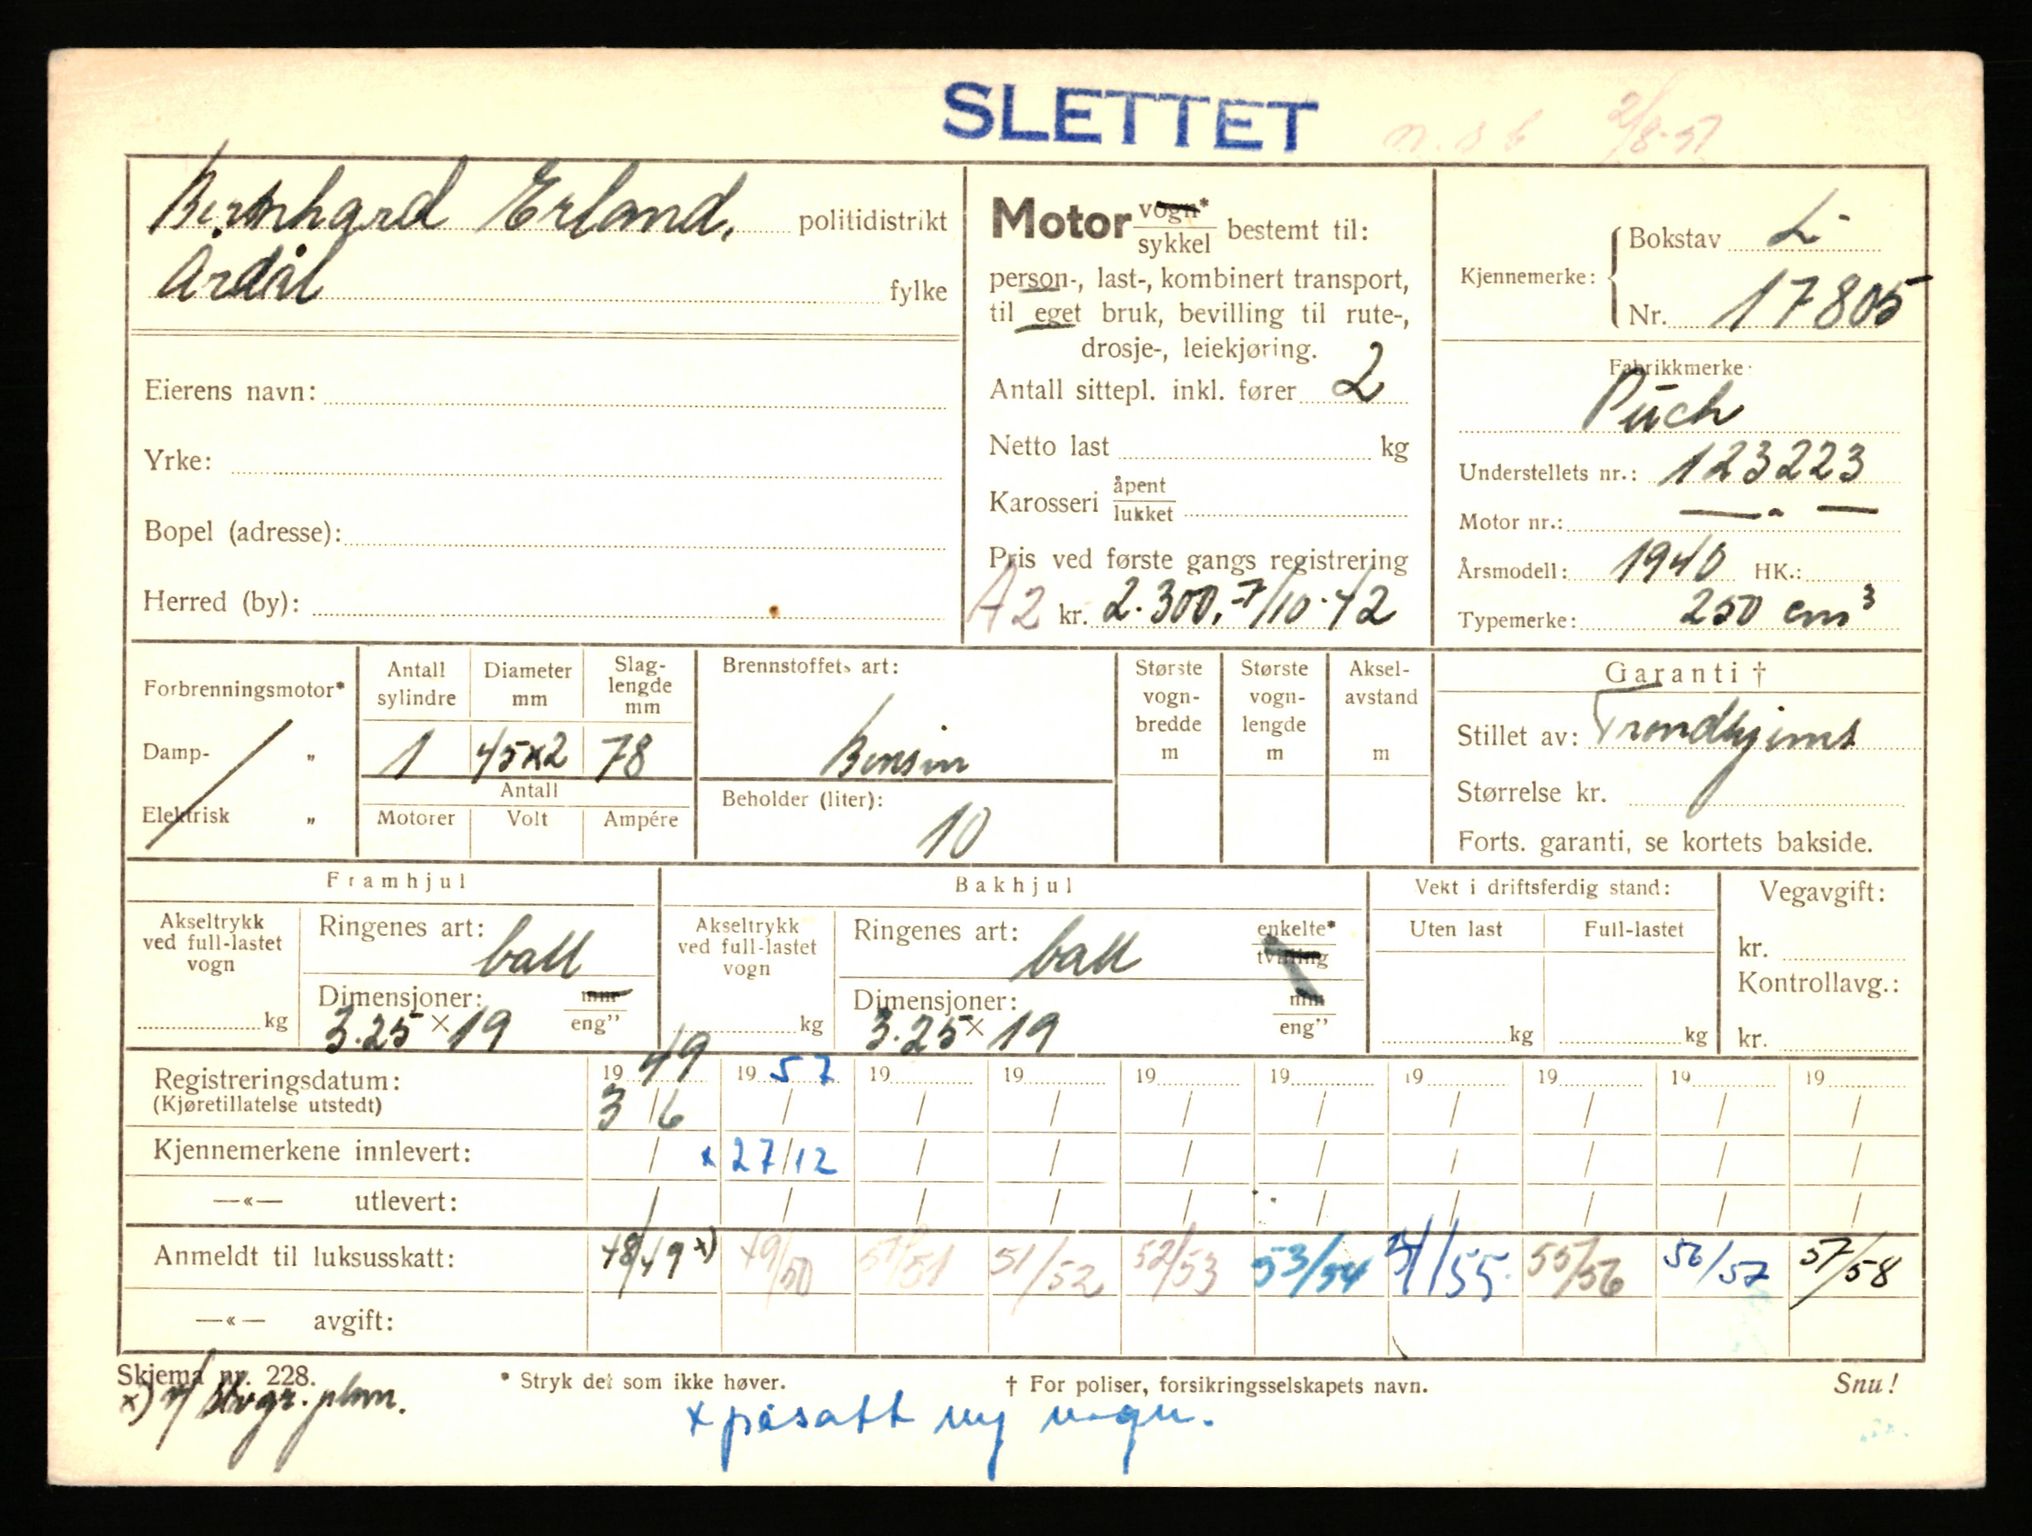 SLETTET
2/8-51
Bernhard Erland, politidistrikt
Årdal fylke
Eierens navn:
Yrke:
Bopel (adresse):
Herred (by):
Motor vogn* sykkel bestemt til:
person-, last-, kombinert transport,
til eget bruk, bevilling til rute-,
drosje-, leiekjøring.
Antall sittepl. inkl. fører 2
Netto last kg
Karosseri åpent lukket
Pris ved første gangs registrering
A2 kr. 2.300,- 7/10-42
Kjennemerke: Bokstav L
Nr. 17805
Fabrikkmerke
Puch
Understellets nr.: 123223
Motor nr.: — " —
Årsmodell: 1940 HK.:
Typemerke: 250 cm³
Forbrenningsmotor*
Damp- „
Elektrisk „
Antall sylindre Diameter mm Slag-lengde mm
1 45x2 78
Antall
Motorer Volt Ampére
Brennstoffets art:
Bensin
Beholder (liter):
10
Største vogn-bredde m
Største vogn-lengde m
Aksel-avstand m
Garanti †
Stillet av: Trondhjems
Størrelse kr.
Forts. garanti, se kortets bakside.
Framhjul
Akseltrykk ved full-lastet vogn
kg
Ringenes art: ball
Dimensjoner: mm eng"
3.25 x 19
Bakhjul
Akseltrykk ved full-lastet vogn
kg
Ringenes art: ball enkelte* tvilling
Dimensjoner: mm eng"
3.25 x 19
Vekt i driftsferdig stand:
Uten last Full-lastet
kg kg
Vegavgift:
kr.
Kontrollavg.:
kr.
Registreringsdatum: 19 49 19 57 19 19 19 19 19 19 19 19
(Kjøretillatelse utstedt) 3/6 / / / / / / / / /
Kjennemerkene innlevert: / x 27/12 / / / / / / / /
—«— utlevert: / / / / / / / / / /
Anmeldt til luksusskatt: 48/49 x) 49/50 51/51 51/52 52/53 53/54 54/55 55/56 56/57 57/58
—«— avgift:
Skjema nr. 228. * Stryk det som ikke høver. † For poliser, forsikringsselskapets navn. Snu!
x)
x påsatt ny vogn.